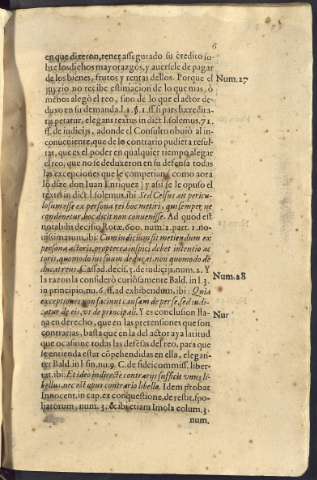 6
en que dixeron, tener assegurado su credito so-
bre los dichos mayorazgos, y auersele de pagar
de los bienes, frutos y rentas dellos. Porque el
juyzio no recibe estimacion de lo que mas, ò
Num. 27
menos alegò el reo, sino de lo que el actor de-
duxo en su demanda l. 1. §. 1. ff. si pars hæredita-
tis petatur, elegans textus in dict. l. solemus, 71.
ff. de iudicijs, adonde el Consulto obuiò al in-
conueniente, que de lo contrario pudiera resul-
tar, que es el poder en qualquier tiempo alegar
el reo, que no se deduxeron en su defensa todas
las excepciones que le competian, como aora
lo dize don Iuan Enriquez; y assi se le opuso el
textus in dict. l. solemus, ibi: Sed Celsus ait pericu-
losum esse ex persona rei hoc metiri, qui semper ne
condenetur hoc dicit non conuenisse. Ad quod est
notabilis decisio Rotæ, 600. num. 2. part. 1. no-
uissimarum, ibi: Cum indicium sit metiendum ex
persona actoris, propterea inspici debet intentio ac-
toris, quomodo ius suum deducat, non quomodo de
ducat reus d. assad. decis. 3. de iudicijs, num. 2. Y
la razon la considerò curiosamente Bald. in l. 3.
Num. 28
in principio, nu. 6. ff. ad exhibendum, ibi: Quia
exceptiones non faciunt causam de per se, sed iudi-
catur de eis, vt de principali. Y es conclusion lla-
Nu
na en derecho, que en las pretensiones que son
contrarias, basta que en la del actor aya latitud
que ocasione todas las defensas del reo, para que
se entienda estar cõprehendidas en ella, elegan-
ter Bald. in l. fin. nu. 9. C. de fideicommiss. libert-
tat. ibi: Et ideo indirecte contrarijs sufficit vnus li-
bellus, nec est opus contrario libello. Idem probat
Innocent. in cap. ex conquestione, de restit. spo-
liatorum, num. 3. & ibi etiam Imola colum. 3.
num.